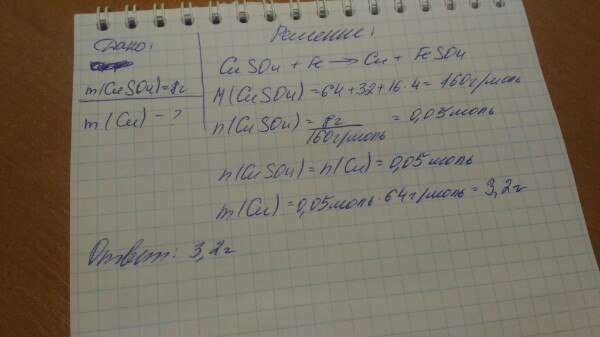 Дано:
m(CuSO4)=8г
m(Cu) - ?
Решение:
CuSO4 + Fe → Cu + FeSO4
M(CuSO4) = 64+32+16·4 = 160г/моль
n(CuSO4) = 8г/160г/моль = 0,05моль
n(CuSO4) = n(Cu) = 0,05моль
m(Cu) = 0,05моль · 64г/моль = 3,2г
Ответ: 3,2г